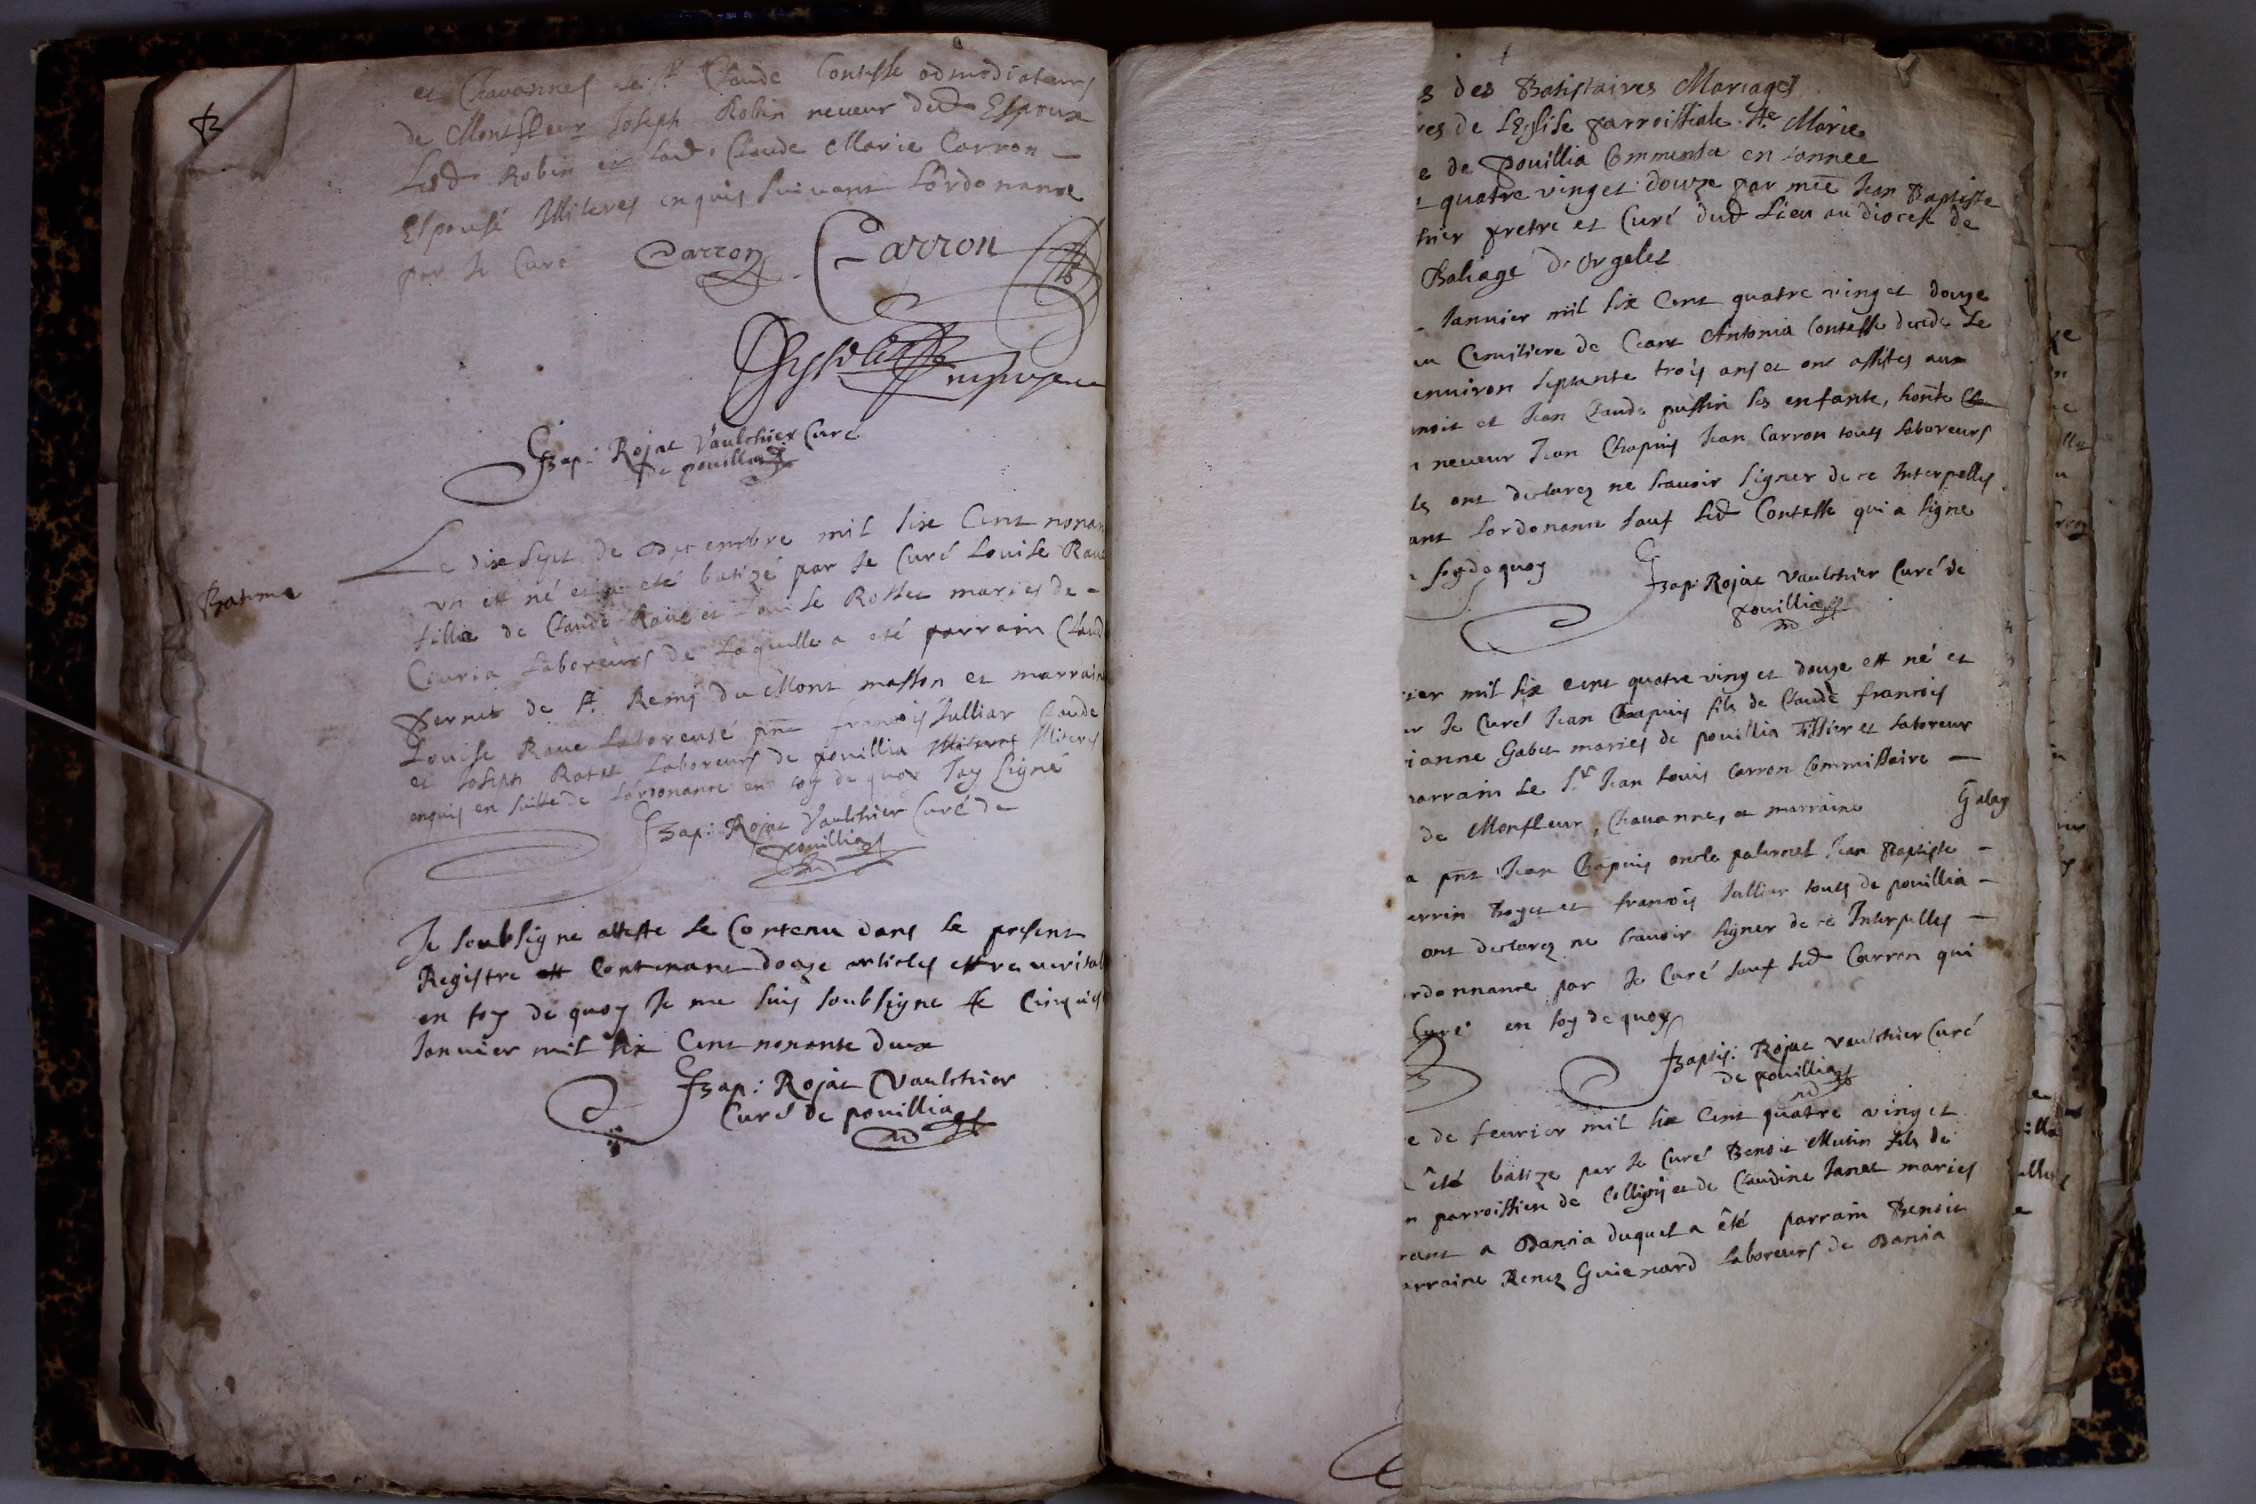 et Chavannes le Sr Claude Contesse admodiateurs
de Montfleur Joseph Robin neveur dud Espoux
Lesd Robin et lad. Claude Marie Carron
Espousé Illiteres enquis suivant Lordonance
par Je Curé Carron Carron
JBap: Rojat Vaulchier Curé
de pouillia
Batême
Le dixe sept de decembre mil sixe Cent nonan
un est né et a eté batizé par Je Curé Louise Rave
fillie de Claude Rave et Louise Rosset mariés de
Civria Laboreurs de Laquelle a eté parrain Claud
pernet de St. Remj du Mont masson et marrain
Louise Rave Laboreuse pnt francois Julliar Claude
et Joseph Laboreurs de pouillia Illiteres
enquis en suitte de Lordonance en foy de quoy Jay signé
JBap: Rojat Vaulchier Curé de
pouillia
Je soubsigne atteste Le Contenu dans Le present
Registre Contenant douze articles estre veritab
en foy de quoy Je me suis soubsigne Le Cinquie
Janvier mil six Cent nonante deux
JBap: Rojat Vaulchier
Curé de pouillia
s des Batistaires Mariages
res de LEglise parroissiale Ste Marie
e de pouillia Commensa en Lannee
t quatre vingt et douze par mre Jean Baptiste
hier pretre et Curé dud Lieu au diocese de
Baliage d'orgelet
Janvier mil six Cent quatre vingt et douze
Cimitiere de Ceant Antonia Contesse Le
environ septante trois ans et ont assités aux
noit et Jean Claude pussin ses enfants, honte
neveur Jean Chapuis Jean Carron touts Laboreurs
ls ont declarez ne scavoir signer de ce Interpelles
ant Lordonanse sauf Led Contesse qui a signe
foy de quoy
JBap: Rojat Vaulchier Curé de
pouillia
rier mil six cent quatre vingt et douze est né et
ar Je Curé Jean Chapuis fils de Claude francois
ianne Gabet mariés de pouillia Tissier et Laboreur
arrain Le Sr Jean Louis Carron Commissaire
de Monfleur, Chavanne, et marraine
a pnt Jean Chapuis oncle paternel Jean Baptiste
errin et francois Jullier touts de pouillia
ont declarez ne scavoir signer de ce Interpelles
rdonnance par Je Curé sauf Led Carron qui
Curé en foy de quoy
JBaptis: Rojat Vaulchier Curé
de pouillia
e de fevrier mil six Cent quatre vingt et
été batize par Je Curé Benoit Mutin fils de
n parroissien de Colligny et de Claudine Janet mariés
rant a Dansia duquel a êté parrain Benoit
arraine Renez Guienard Laboreurs de Dansia